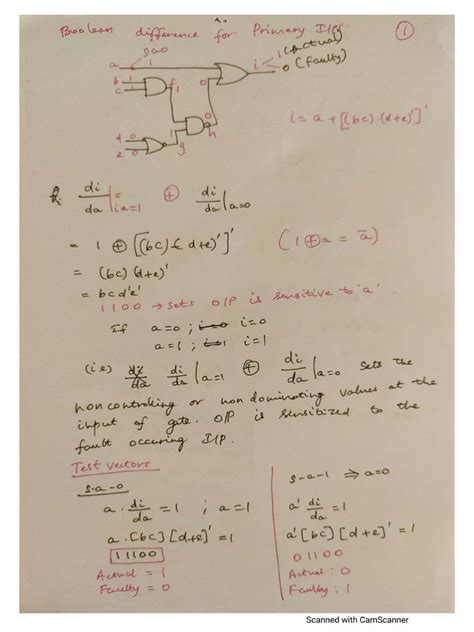 Boolean difference for Primary I/Ps. 1
s-a-0
a 1 i 1 (Actual)
0 (Faulty)
b 1
c 1 f 1 0
i = a + [(bc) (d+e)']'
d 0 1 0 h
e 0 g
di/da = di/da |a=1 ⊕ di/da |a=0
= 1 ⊕ [(bc) (d+e)']' (1 ⊕ a = ā)
= (bc) (d+e)'
= bcd'e'
1100 → sets O/P is sensitive to 'a'.
If a=0 ; i=0
a=1 ; i=1
(i.e) di/da |a=1 ⊕ di/da |a=0 sets the
non controlling or non dominating values at the
input of gate. O/P is sensitized to the
fault occuring I/P.
Test vectors
s-a-0
a . di/da = 1 ; a = 1
a . [bc] [d+e]' = 1
11100
Actual = 1
Faulty = 0
s-a-1 ⇒ a=0
a' di/da = 1
a' [bc] [d+e]' = 1
01100
Actual : 0
Faulty : 1
Scanned with CamScanner